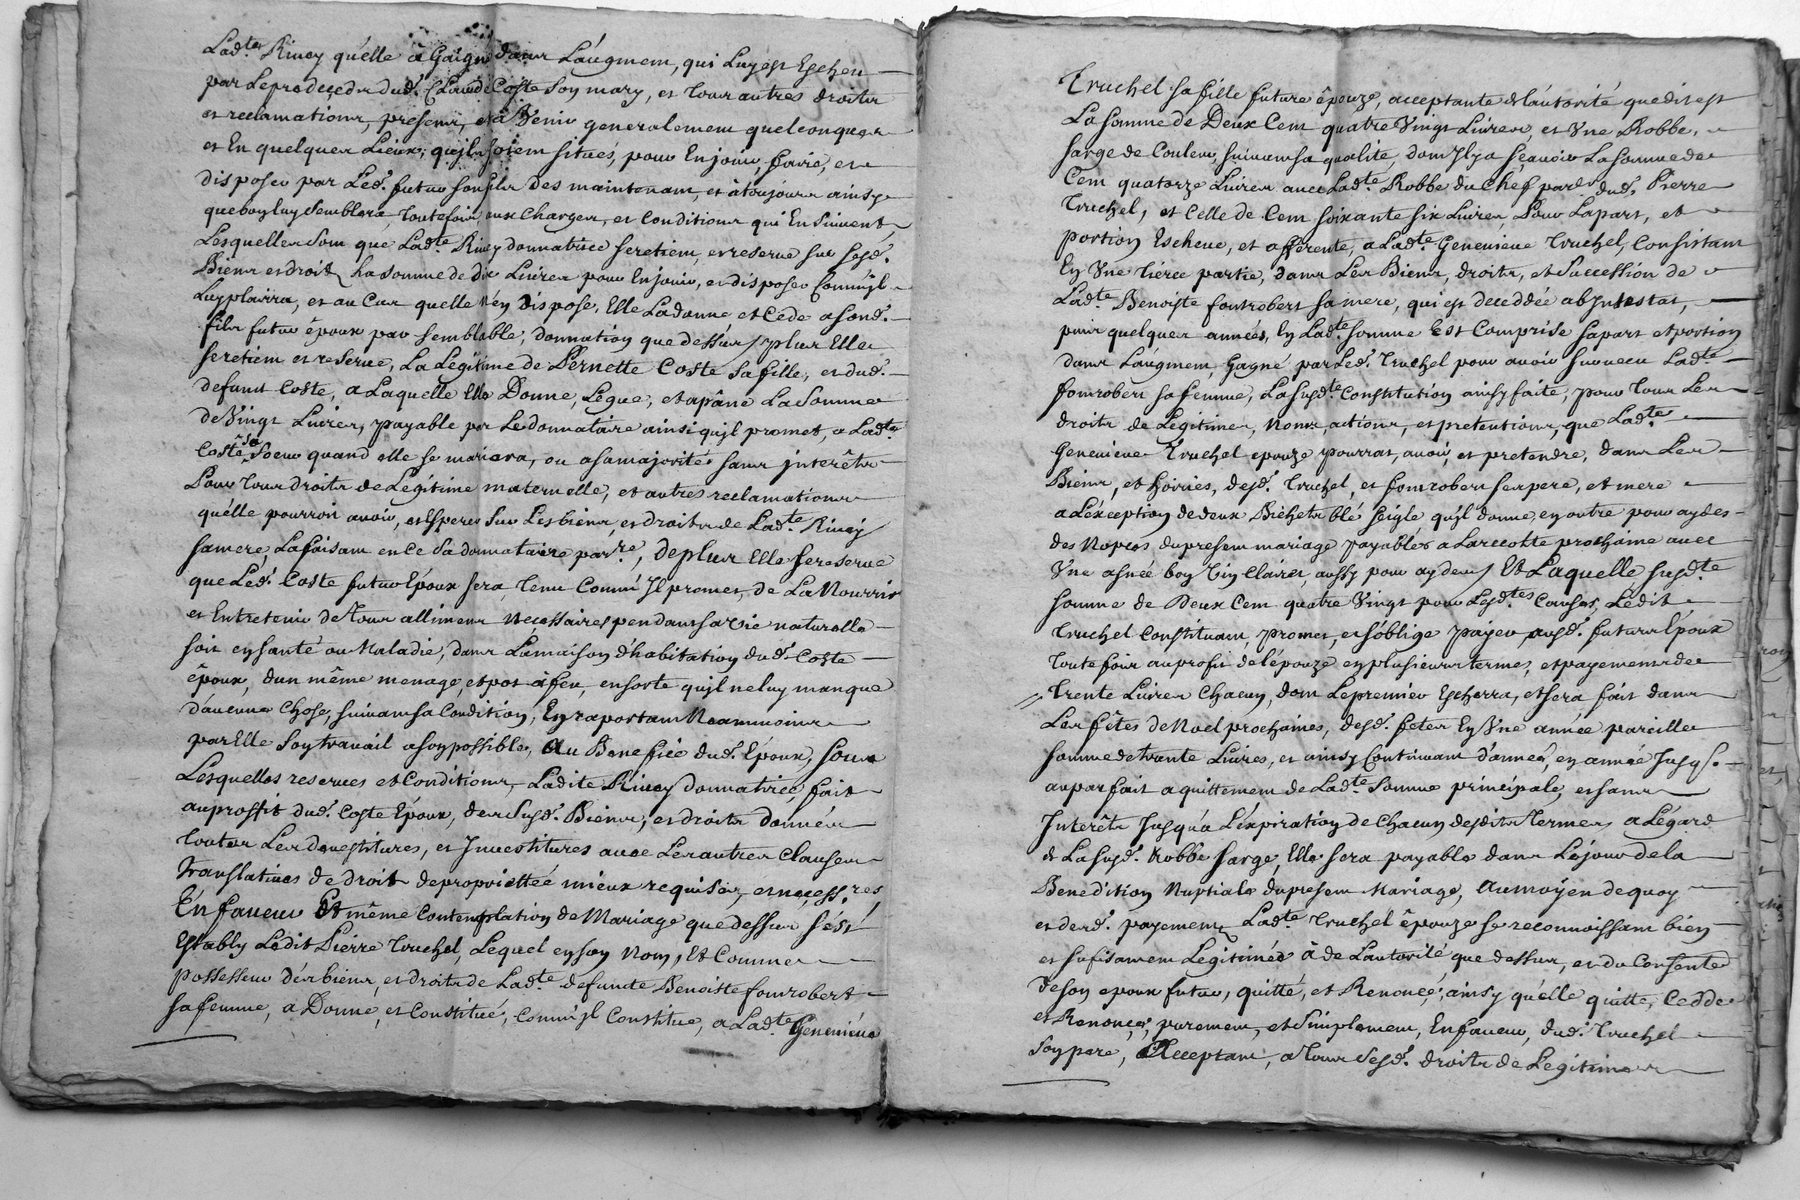 Ladte Rivoy qu'elle a Gaigné dans L'augment, qui Luy est Escheu
par Le predecedz dud. Claude Coste son mary, et tous autres droits
et reclamations, presens, et a Venir generalement quelconques
et En quelques Lieux, qu'ils soient situés, pour En jouir, faire, et
disposer par Led. futur son fils des maintenant, et à toujours ainsy
que bon luy semblera, toutefois aux charges, et Conditions qui En suivent,
Lesquelles sont que Ladte Rivoy donnatrice se retient, et reserve sur sesd.
Biens et droits La somme de dix Livres pour En jouir, et disposer Comm'jl
Luy plairra, et au Cas quelle n'en Dispose, Elle La donne et Cede a sond.
fils futur époux par semblable, donnation que dessus / plus Elle
se retient et reserve, La Legitime de Pernette Coste sa fille, et dud.
defunt Coste, a Laquelle Elle Donne, Legue, et apâne La Somme
de Vingt Livres, payable par Le donnataire ainsi qu'jl promet, a Ladte
Coste sa Soeur quand elle se mariera, ou a sa majorité sans jnterêts
Pour tous droits de Legitime maternelle, et autres reclamations
qu'elle pourroit avoir, et Esperer sur Les biens, et droits de Ladte Rivoy
sa mere, La faisant en ce sa donnataire parre, de plus Elle se reserve
que Led. Coste futur Epoux sera, tenu Comm' Il promet, de La Nourrir
et Entretenir de tous alliments necessaires pendant sa vie naturelle
soit en santé ou Maladie, dans La maison d'habitation dud. Coste
époux, d'un même menage, et pot a feu, en sorte qu'jl ne luy manque
d'aucune chose, suivant sa Condition, En raportant Neanmoins
par Elle son travail a son possible, Au Benefice dud. Epoux, sous
Lesquelles reserves et Conditions, Ladite Rivoy donnatrice, fait
au proffit dud. Coste Epoux, des Susd. Biens, et droits donnés
toutes Les devestitures, et Jnvestitures avec Les autres clauses
translatives de droit de proprietté mieux requises, et necess.res,
En faveur Et même Contemplation de Mariage que dessus s'est
Estably Ledit Pierre truchel, Lequel en son Nom, Et Comme
possesseur des biens, et droits de Ladte defunte Benoiste fontrobert
sa femme, a Donné, et Constitué, comm' jl Constitue, a Ladte Genevieve
truchel sa fille future épouze, acceptante de l'autorité que dit est
La somme de Deux Cent quatre Vingt Livres, et Une Robbe,
sarge de Couleur, suivant sa qualité, dont Jl y a sçavoir La somme de
Cent quatorze Livres avec Ladte Robbe du Chef par dud. Pierre
truchel, et Celle de Cent soixante six Livres Pour La part, et
portion Escheue, et afferente, a Ladte Genevieve truchel, Consistant
En Une tierce partie, dans Les Biens, droits, et Succession de
Ladte Benoiste fontrobert sa mere, qui est deceddée ab Jntestat,
puis quelques années, En Ladte somme Est Comprise sa part et portion
dans L'augment, Gagné par Led. truchel pour avoir survecu Ladte
fontrobert sa femme, La susdte Constitution ainsy faite, pour tous Les
droits de Legitimes, Noms, actions, et pretentions, que Ladte
Genevieve truchel epouze pourrat, avoir, et pretendre, dans Les
Biens, et hoiries, desd. truchel, et fontrobert ses pere, et mere
a L'éxception de deux Bichets blé seigle qu'jl donne, en outre pour aydes
des Nopces du present mariage payables a La recolte prochaine avec
Une asnée bon Vin Clairet, aussy pour aydes / Et Laquelle susdte
somme de Deux Cent quatre Vingt pour Lesdtes Causes, Ledit
truchel Constituant, promet, et s'oblige payer, ausd. futurs Epoux
toutefois au profit de l'épouze en plusieurs termes, et payements de
trente Livres chacun, dont Le premier Escherra, et sera fait dans
Les fêtes de Noel prochaines, desd. fetes En Une année pareille
somme de trante Livres, et ainsy Continuant d'année, en année Jusqs.
au parfait aquittement de Ladte Somme principale, et sans
Interêts Jusqu'a L'éxpiration de chacun desdits termes a L'égard
de La susd. Robbe sarge, Elle sera payable dans Le jour de la
Benedition Nuptiale du present Mariage, Au moyen de quoy
et desd. payements Ladte truchel épouze se reconnoissant bien
et sufisament Legitimée à de L'autorité que dessus, et du Consente
de son epoux futur, quitté, et Renoncé, ainsy qu'elle quitte, Cedde
et Renonce, purement, et Simplement, En faveur, dud. truchel
son pere, Acceptant, a tous Sesd. droits de Legitimes